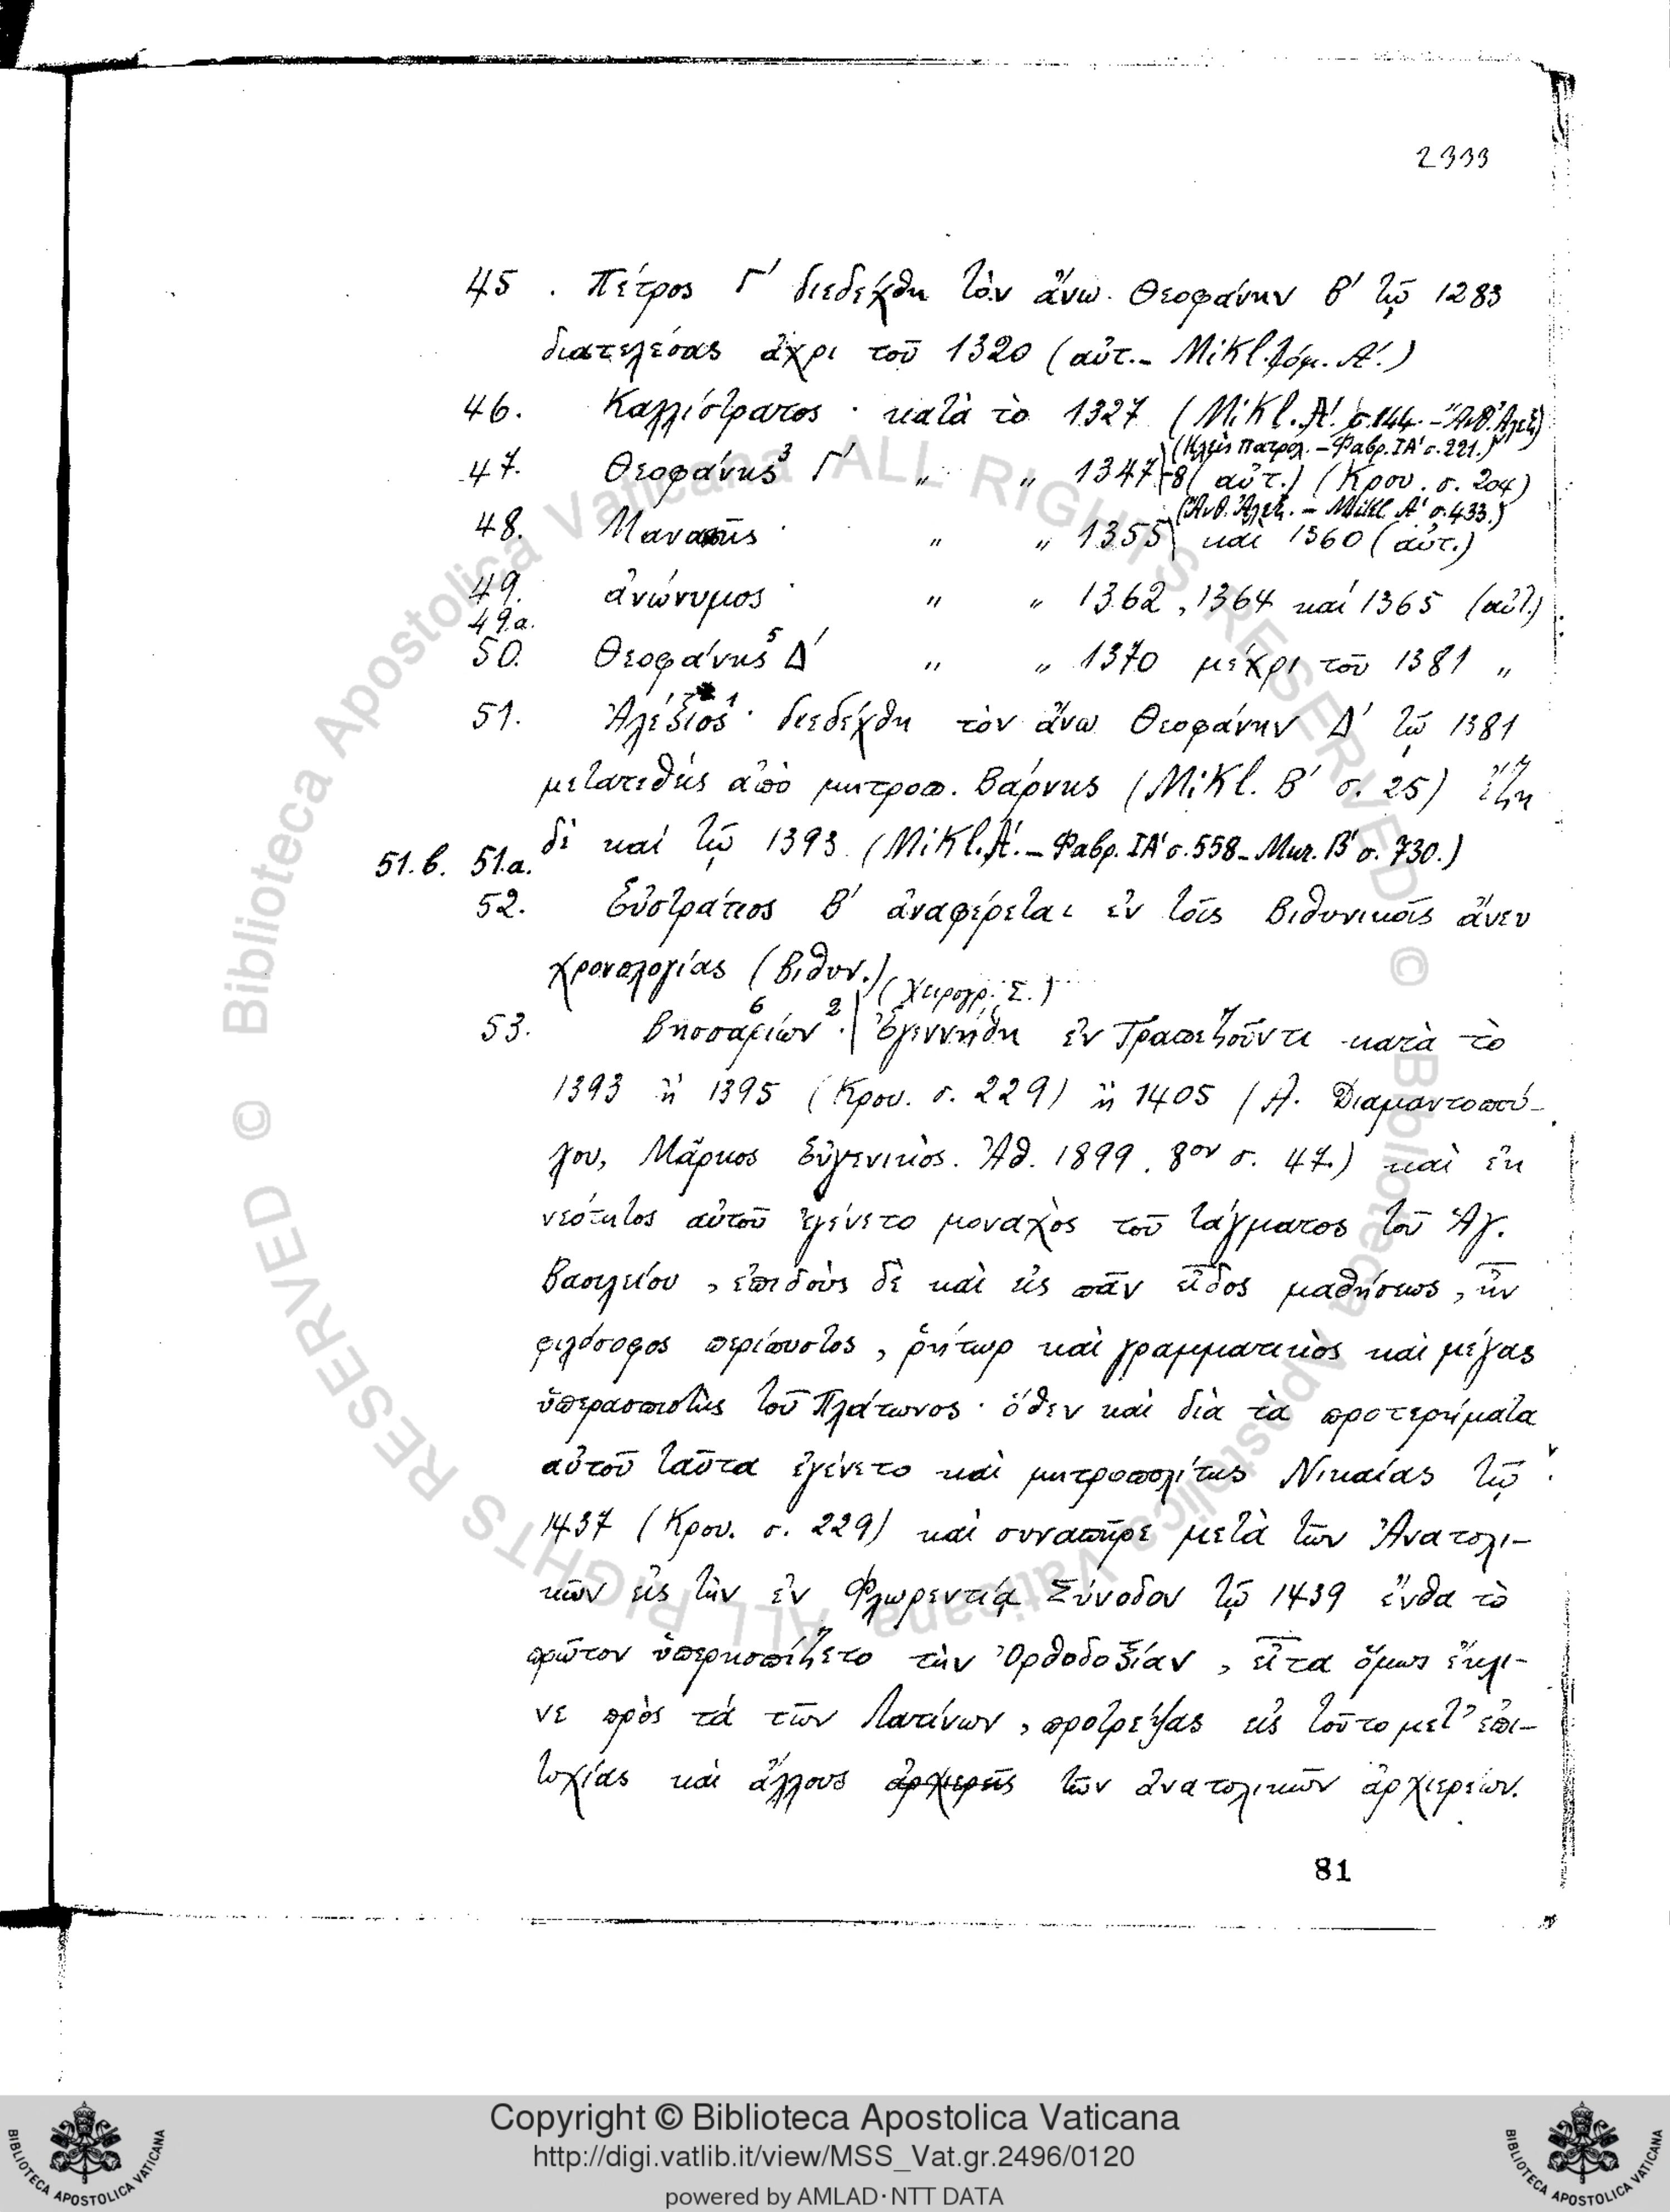 2333
45. Πέτρος Γ' διεδέχθη τὸν ἄνω Θεοφάνην Β' τῷ 1283
διατελέσας ἄχρι τοῦ 1320 (αὐτ. - Mikl. τόμ. Α'.)
46. Καλλίστρατος · κατὰ τὸ 1327 (Mikl. Α'. σ. 144. - Ἄνθ. Ἀλεξ)
(Κλεὶς Πατρολ. - Φαβρ. ΙΑ' σ. 221.)
47. Θεοφάνης³ Γ' " " 1347-8 (αὐτ.) (Κρου. σ. 204)
(Ἄνθ. Ἀλεξ. - Mikl. Α' σ. 433.)
48. Μανασῆς · " " 1355 καὶ 1360 (αὐτ.)
49. ἀνώνυμος · " " 1362, 1364 καὶ 1365 (αὐτ.)
49.α.
50. Θεοφάνης⁵ Δ' " " 1370 μέχρι τοῦ 1381 "
51. Ἀλέξιος¹ · διεδέχθη τὸν ἄνω Θεοφάνην Δ' τῷ 1381
μετατεθεὶς ἀπὸ μητροπ. Βάρνης (Mikl. Β' σ. 25) Ἔζη
δὲ καὶ τῷ 1393 (Mikl. Α'. - Φαβρ. ΙΑ' σ. 558 - Μικ. Β' σ. 730.)
51.β. 51.α.
52. Εὐστράτιος Β' ἀναφέρεται ἐν τοῖς Βιθυνικοῖς ἄνευ
χρονολογίας (Βιθυν.)
(Χειρογρ. Σ.)
53. Βησσαρίων⁶ ² · Ἐγεννήθη ἐν Τραπεζοῦντι κατὰ τὸ
1393 ἢ 1395 (Κρου. σ. 229) ἢ 1405 (Α. Διαμαντοπού-
λου, Μᾶρκος Εὐγενικὸς. Ἀθ. 1899. 8ον σ. 47.) καὶ ἐκ
νεότητος αὐτοῦ ἐγένετο μοναχὸς τοῦ τάγματος τοῦ Ἁγ.
Βασιλείου, ἐπιδοὺς δὲ καὶ εἰς πᾶν εἶδος μαθήσεως, ἦν
φιλόσοφος περίπυστος, ῥήτωρ καὶ γραμματικὸς καὶ μέγας
ὑπερασπιστὴς τοῦ Πλάτωνος · ὅθεν καὶ διὰ τὰ προτερήματα
αὐτοῦ ταῦτα ἐγένετο καὶ μητροπολίτης Νικαίας τῷ
1437 (Κρου. σ. 229) καὶ συναπῆρε μετὰ τῶν Ἀνατολι-
κῶν εἰς τὴν ἐν Φλωρεντίᾳ Σύνοδον τῷ 1439 ἔνθα τὸ
πρῶτον ὑπερησπίζετο τὴν Ὀρθοδοξίαν, εἶτα ὅμως ἔκλι-
νε πρὸς τὰ τῶν Λατίνων, προτρέψας εἰς τοῦτο μετ' ἐπι-
τυχίας καὶ ἄλλους ἀρχιερεῖς τῶν ἀνατολικῶν ἀρχιερέων.
81
© Biblioteca Apostolica Vaticana ALL RIGHTS RESERVED © Biblioteca Apostolica Vaticana ALL RIGHTS RESERVED
BIBLIOTECA APOSTOLICA VATICANA
Copyright © Biblioteca Apostolica Vaticana
http://digi.vatlib.it/view/MSS_Vat.gr.2496/0120
powered by AMLAD·NTT DATA
BIBLIOTECA APOSTOLICA VATICANA